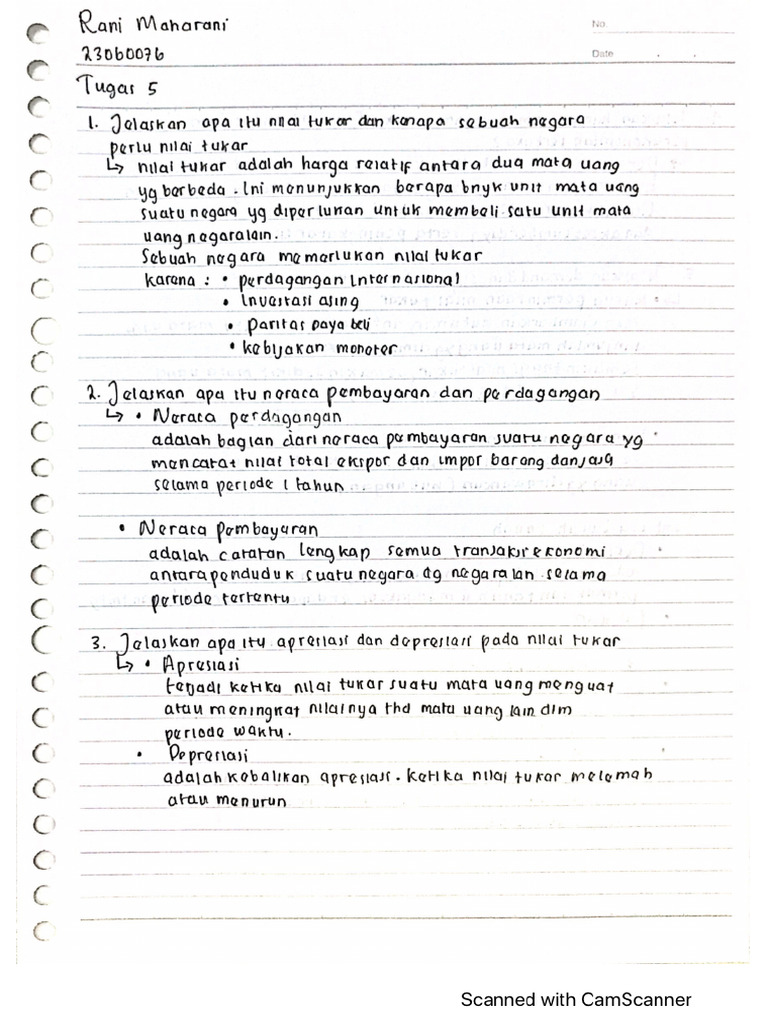 Rani Maharani
No.
23060076
Date . .
Tugas 5
1. Jelaskan apa itu nilai tukar dan kenapa sebuah negara
perlu nilai tukar
↳ nilai tukar adalah harga relatif antara dua mata uang
yg berbeda. Ini menunjukkan berapa bnyk unit mata uang
suatu negara yg diperlukan untuk membeli satu unit mata
uang negara lain.
Sebuah negara memerlukan nilai tukar
karena : • perdagangan Internasional
• Investasi asing
• paritas Daya beli
• kebijakan moneter
2. Jelaskan apa itu neraca pembayaran dan perdagangan
↳ • Neraca perdagangan
adalah bagian dari neraca pembayaran suatu negara yg
mencatat nilai total ekspor dan impor barang dan jasa
selama periode 1 tahun
• Neraca Pembayaran
adalah catatan lengkap semua transaksi ekonomi
antara penduduk suatu negara dg negara lain selama
periode tertentu
3. Jelaskan apa itu apresiasi dan depresiasi pada nilai tukar
↳ • Apresiasi
terjadi ketika nilai tukar suatu mata uang menguat
atau meningkat nilainya thd mata uang lain dlm
periode waktu.
• Depresiasi
adalah kebalikan apresiasi. ketika nilai tukar melemah
atau menurun
Scanned with CamScanner